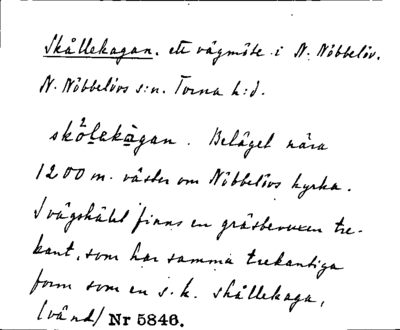 Skållekagan. ett vägmöte i N. Nöbbelöv.
N. Nöbbelövs s:n. Torna h:d.
skölekägan. Beläget nära
1200 m. väster om Nöbbelövs kyrka.
I vägskälet finns en gräsbevuxen tre-
kant, som har samma trekantiga
form som en s.k. skållekaga,
(vänd) Nr 5846.